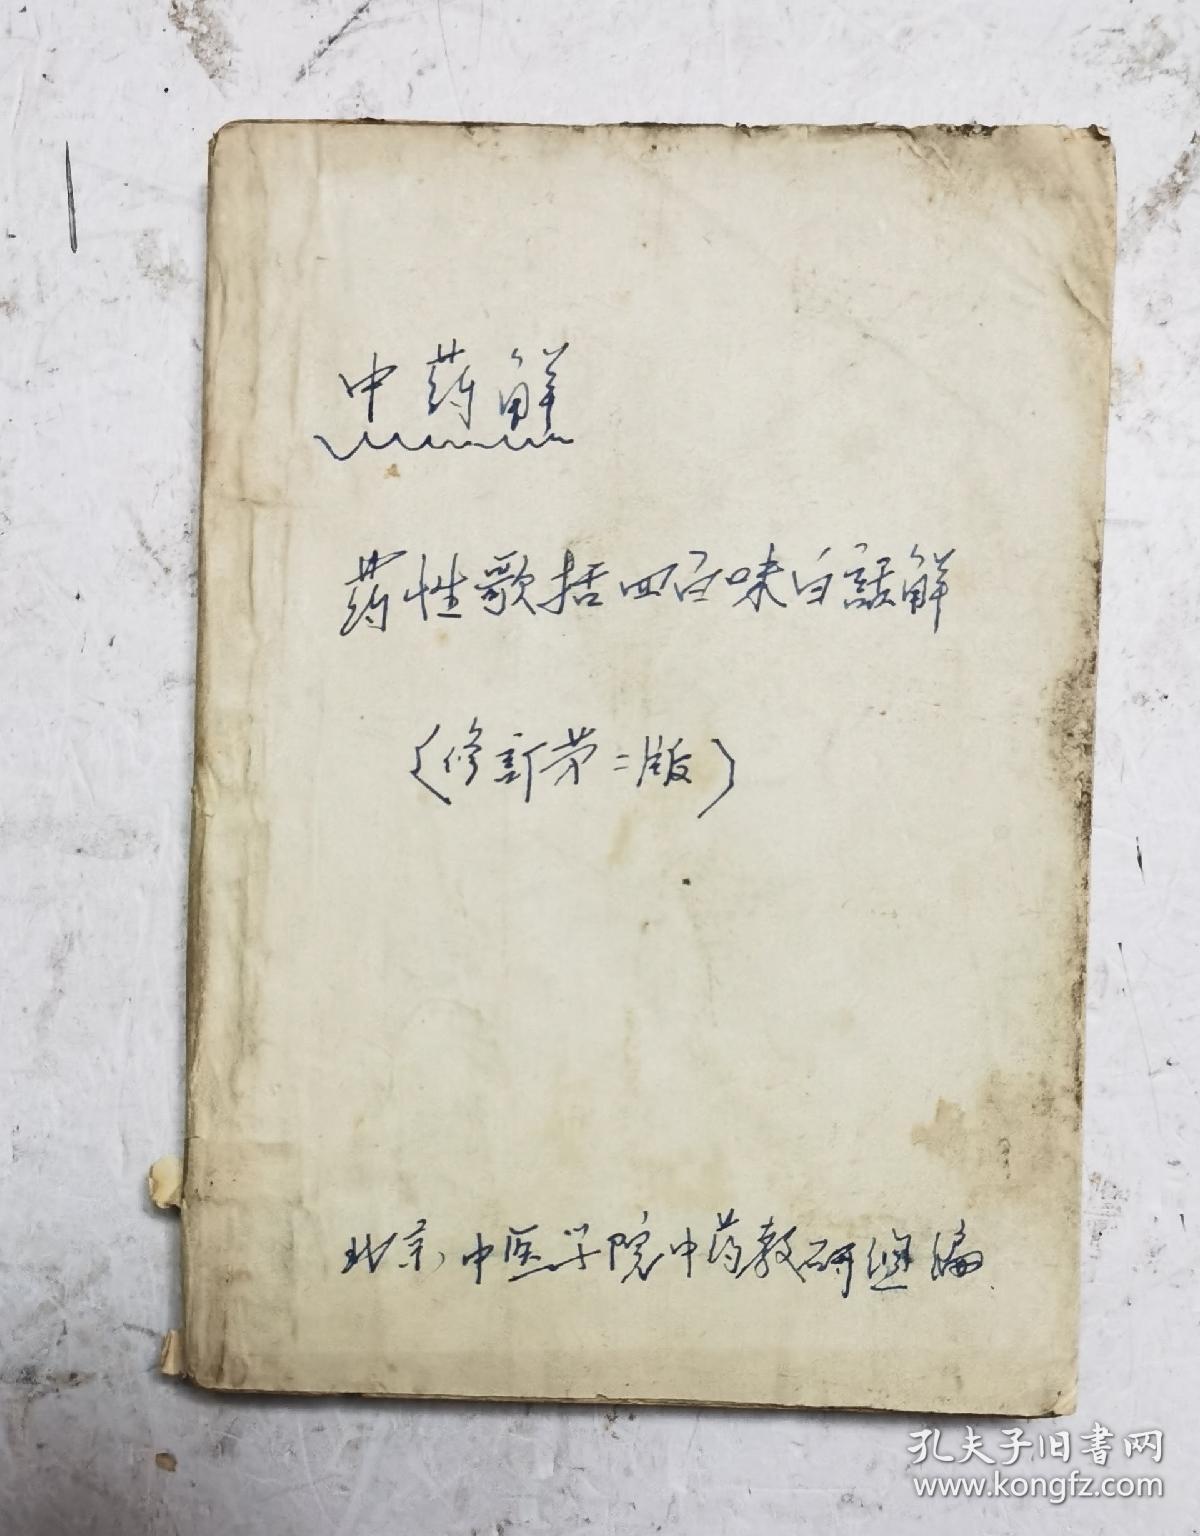 中药解
药性歌括四百味白話解
(修訂第二版)
北京中医学院中药教研组编
孔夫子旧书网
www.kongfz.com